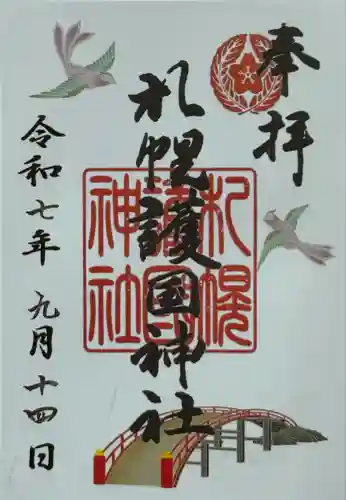 奉拝
札幌護國神社
札幌護国神社
令和七年九月十四日